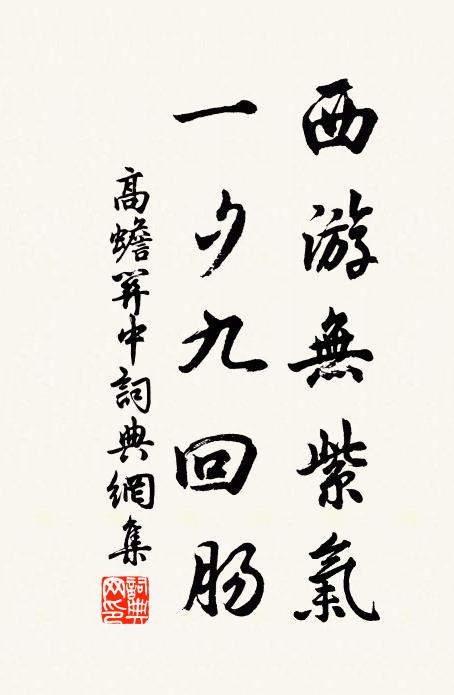 西游無紫氣
一夕九回肠
高蟾關中詞典網集
詞典网印